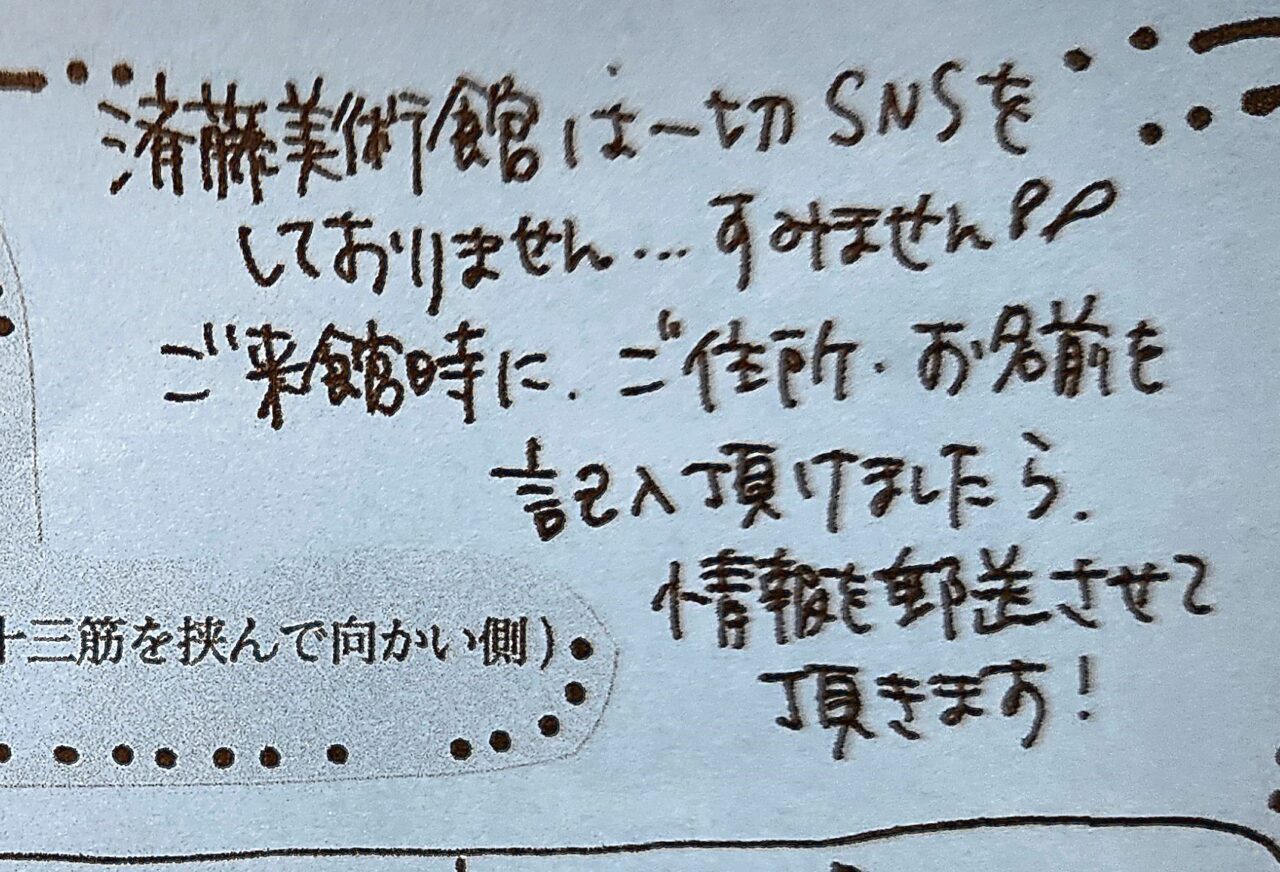 済藤美術館は一切SNSを
しておりません...すみません
ご来館時に、ご住所・お名前を
記入頂けましたら、
情報を郵送させて
頂きます!
十三筋を挟んで向かい側)